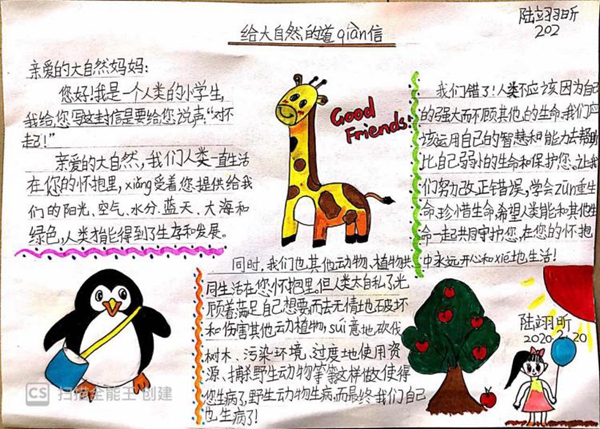 给大自然的道qiàn信
陆翊昕
202
亲爱的大自然妈妈:
您好!我是一个人类的小学生,
我给您写这封信是要给您说声“对不
起了!”
亲爱的大自然,我们人类一直生活
在您的怀抱里,xiǎng受着您提供给我
们的阳光、空气、水分、蓝天、大海和
绿色,人类才能得到了生存和发展。
Good
Friends!
同时,我们也其他动物、植物共
同生活在您怀抱里,但人类太自私了,光
顾着满足自己想要而去无情地破坏
和伤害其他动植物,suí意地砍伐
树木、污染环境、过度地使用资
源、捕杀野生动物等等这样做,使得
您生病了,野生动物生病,而最终我们自己
也生病了!
我们错了!人类不应该因为自己
的强大而不顾其他的生命,我们应
该运用自己的智慧和能力去帮助
比自己弱小的生命和保护您,让我
们努力改正错误,学会zūn重生
命,珍惜生命,希望人类能和其他生
命一起共同守护您,在您的怀抱
中永远开心和xié地生活!
陆翊昕
2020.2.20
CS 扫描全能王 创建